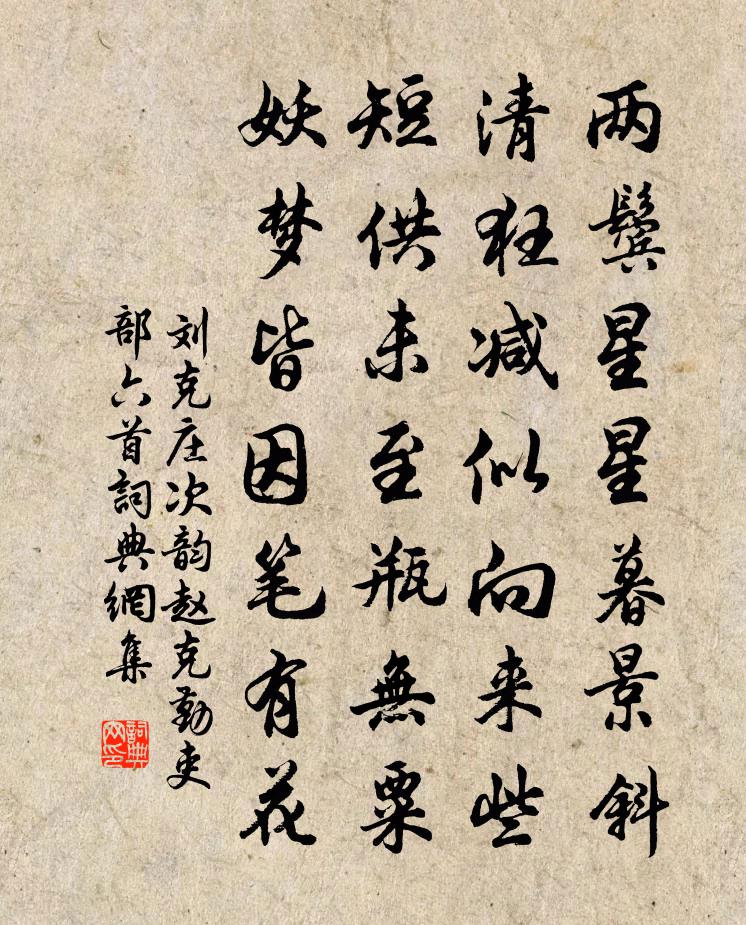 两鬓星星暮景斜
清狂减似向来些
短供未至瓶無粟
妖梦皆因笔有花
刘克庄次韵赵克勤吏
部六首詞典網集
詞典
网印